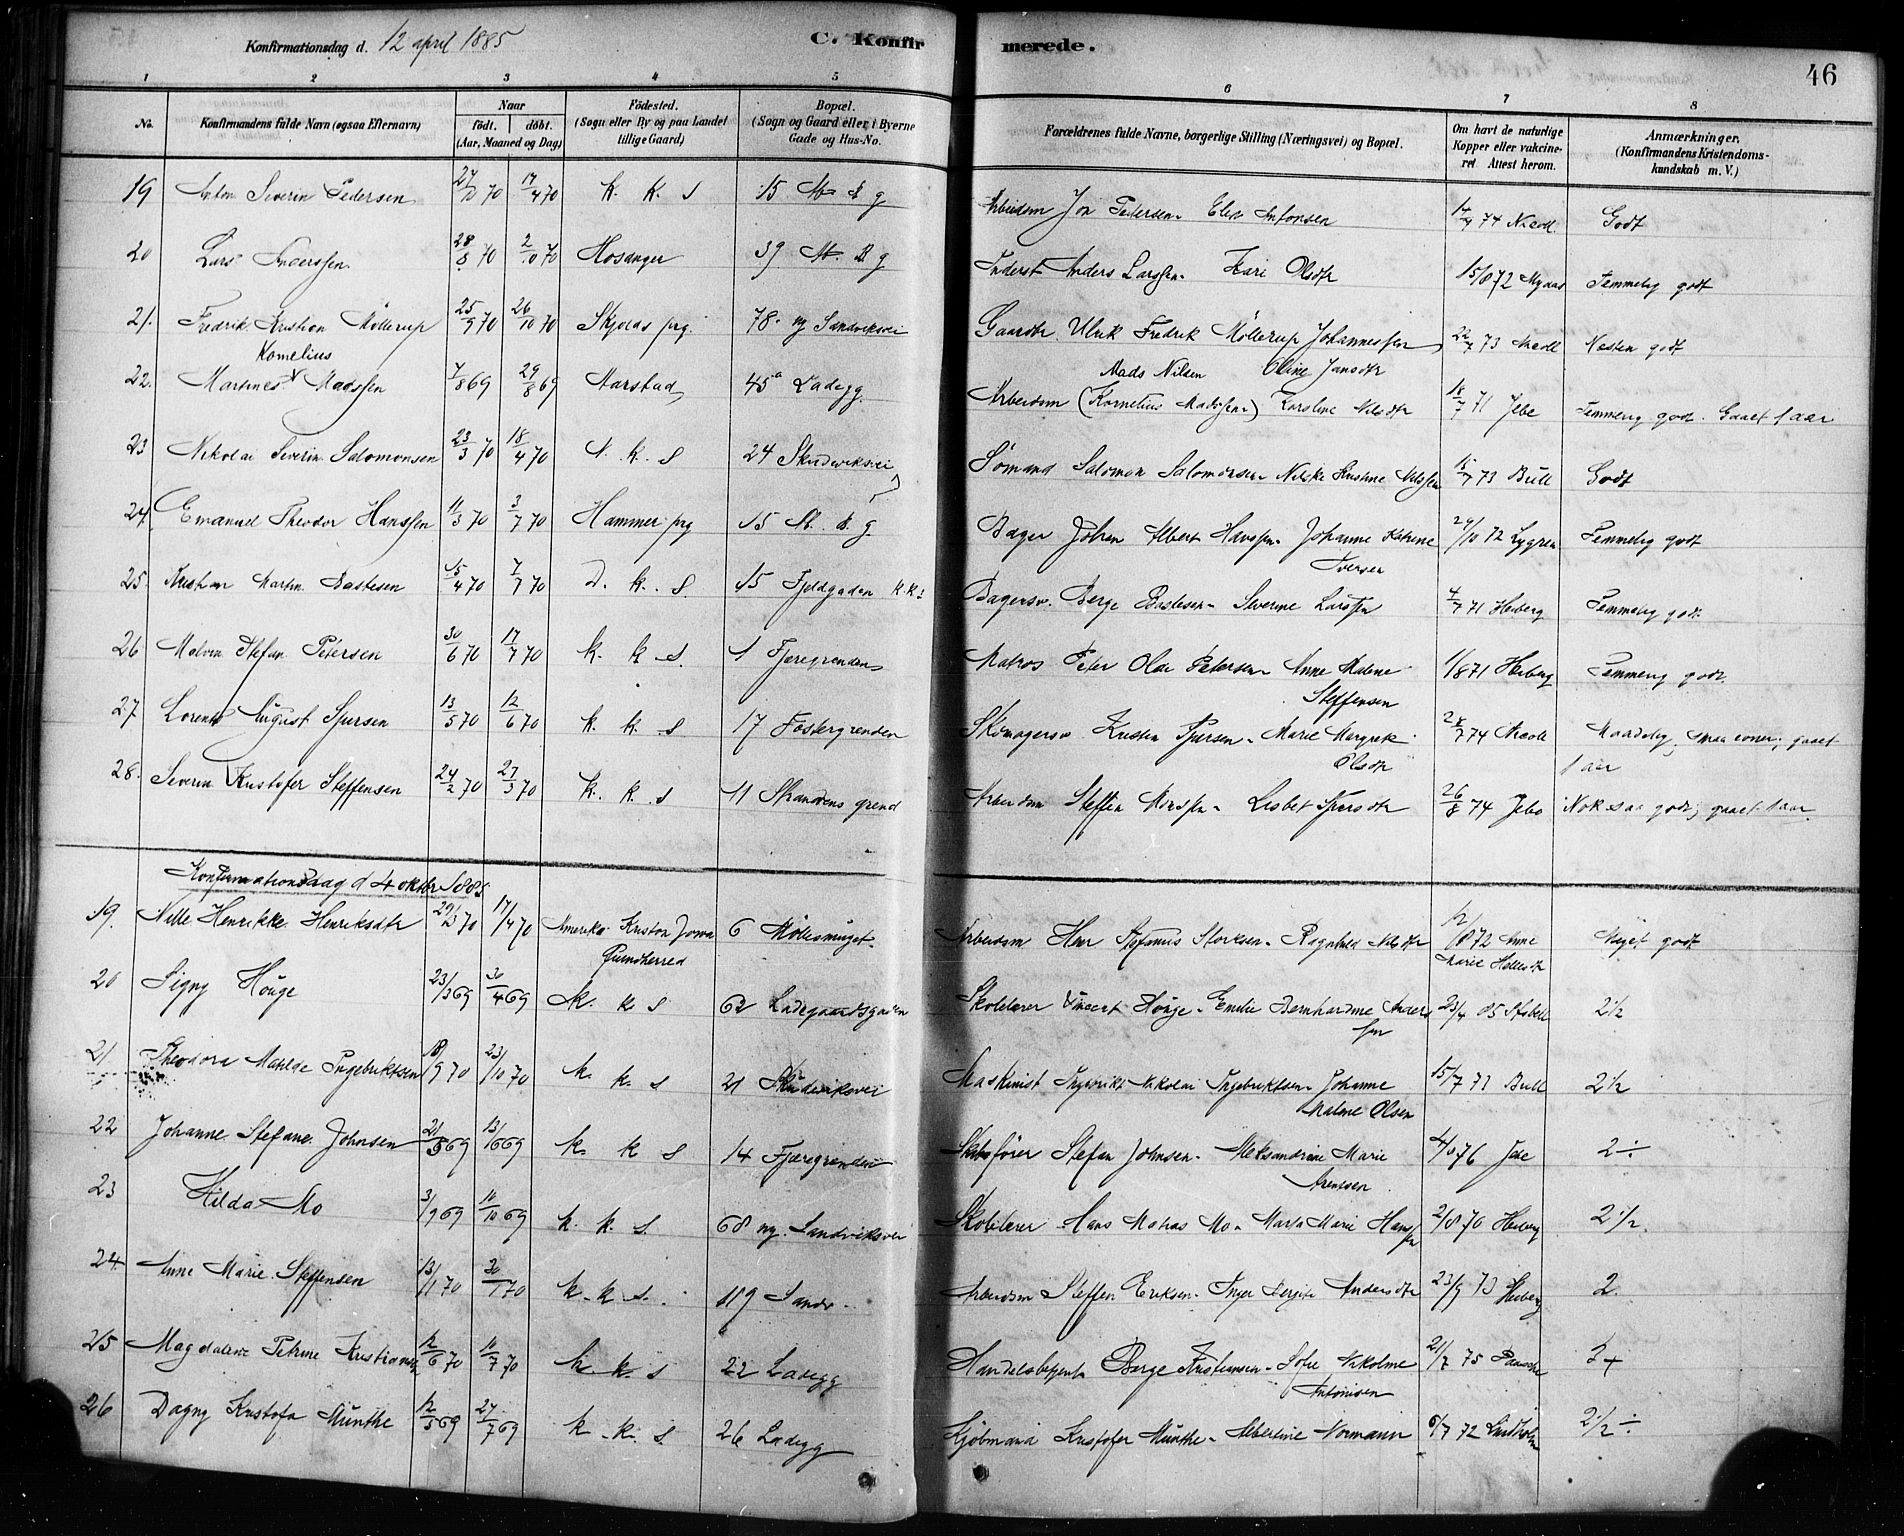 Konfirmationsdag d. 12 april 1885
C. Konfirmerede.
46
1 2 3 4 5 6 7 8
No.
Konfirmandens fulde Navn (ogsaa Efternavn)
Naar
födt. döbt.
(Aar, Maaned og Dag)
Födested.
(Sogn eller By og paa Landet
tillige Gaard)
Bopæl.
(Sogn og Gaard eller i Byerne
Gade og Hus-No.
Forældrenes fulde Navne, borgerlige Stilling (Næringsvei) og Bopæl.
Om havt de naturlige
Kopper eller vakcine-
ret Attest herom.
Anmærkninger.
(Konfirmandens Kristendoms-
kundskab m. V.)
19 Anton Severin Pedersen 17/4 70 K. K. S 15 g Arbeidsm Jon Pedersen Antonsen 74 Godt
20 Lars Anderssen 28/8 70 2/10 70 Hosanger 39 g Inderst Anders Larssen Kari Olsdtr 15/8 72 Temmelig godt
21. Fredrik Kristian Möllerup 25/9 70 26/10 70 Skjolds prg. 78 ny Sandviksvei Gaardbr. Ulrik Fredrik Möllerup Johannessen 73 Næsten godt
Oline Jansdtr
Kornelius
22. Martines Madssen 7/8 69 29/8 69 Aarstad 45a Ladegg Mads Nilsen
Arbeidsm (Kornelius Madssen) Karoline Nilsdtr 18/7 71 Jebe Temmelig god. Gaaet 1 aar
23 Nikolai Severin Salomonsen 23/3 70 18/4 70 N. K. S 24 Skudeviksvei Sömand Salomon Salomonsen Kristine Nilssen 15/7 73 Bull Godt
24 Emanuel Theodor Hanssen 11/3 70 3/7 70 Hammer prg 15 g Bager Johan Albert Hanssen Johanne Katrine 29/10 72 Lygren Temmelig godt
Iversen
25. Kristian Martin Bastesen 15/4 70 7/7 70 D. K. S. 15 Fjeldgaden K.K. Bagersv. Berge Bastesen Severine Larssen 4/7 71 Heiberg Temmelig godt
26 Stefan Petersen 30/6 70 17/7 70 K. K. S. 1 Fjæregrenden Matros Peter Olai Petersen Anne Malene 1/8 71 Heiberg Temmelig godt.
Steffensen
27. Lorents August Sjursen 13/5 70 12/6 70 K. K. S 17 Fostergrenden Skomagersv. Kristen Sjursen Marie Margrete 74 Maadelig, smaa evner; gaaet
Olsdtr 1 aar
28. Severin Kristofer Steffensen 24/2 70 27/3 70 K. K. S 11 Strandens grend Arbeidsm Steffen Lisbet Sjursdtr 26/8 74 Jebe Nok saa godt; gaaet 1 aar.
Konfirmationsdag d 4 oktbr 1885
19. Nille Henrikke Henriksdtr 17/4 70 Amerika 6 Möllesmuget Arbeidsm Storksen Ragnhild Nilsdtr 72 Anne Meget godt
Qvindherred Marie
20 Signy Houge 23/3 69 30/4 69 K. K S 62 Ladegaardsgaden Skolelærer Vincent Houge Emilie Bernhardine Anders 23/4 85 2 1/2
sen
21 Theodora Matilde Ingebriktsen 18/9 70 23/10 70 K. K S 21 Skudeviksvei Maskinist Ingebrikt Nikolai Ingebriktsen Johanne 15/7 71 Bull 2 1/2
Malene Olsen
22 Johanne Stefane Johnsen 21/5 69 13/6 69 K. K S 14 Fjæregrenden Skibsförer Stefan Johnsen Aleksandrine Marie 4/8 76 2 ÷
Arentsen
23 Hilda Mo 3/9 69 10/10 69 K. K. S. 68 ny. Sandviksvei Skolelærer Hans Matias Mo Marta Marie Hans 2/8 70 Heiberg 2 1/2.
sen
24 Anne Marie Steffensen 13/1 70 30/1 70 K. K. S. 119 Sandv Arbeidsm Steffen Eriksen Inger Andersdtr 23/9 73 Heiberg 2
25 Magdalene Petrine Kristiansen 12/6 70 10/7 70 K. K. S 22 Ladegg Handelsbetjent Berge Kristiansen Sofie Nikoline 21/7 75 Paasche 3 +
Antonisen
26 Dagny Kristofa Munthe 12/5 69 27/7 69 K. K. S. 26 Ladegg Kjöbmand Kristofer Munthe Albertine Normann 6/7 72 Lindholm 2 1/2 ÷